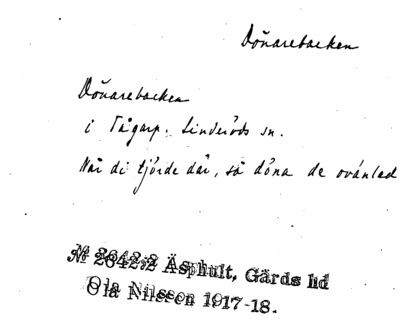 Dönarebacken
Dönarebacken
i Tågarp. Linderöds sn.
När di tjörde där, så döna de ovánlad
№ 2642:2 Äsphult, Gärds hd
Ola Nilsson 1917-18.